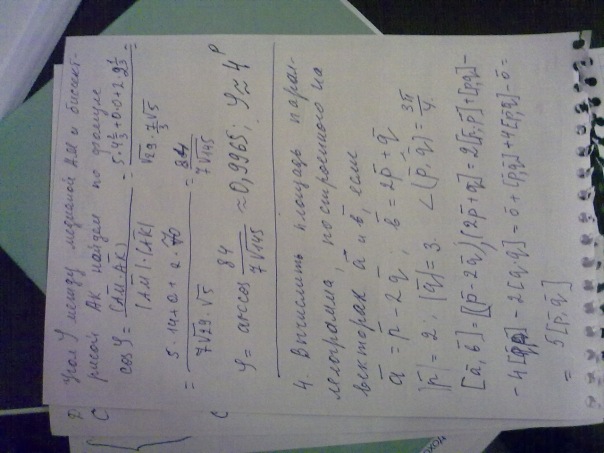 Угол φ между медианой АМ и биссект-
рисой АК найдем по формуле
cos φ = (A̅M̅·A̅K̅) / (|A̅M̅|·|A̅K̅|) =
= (5·14+0+2·) / (7√29·√5) = 84 / (7√145)
φ = arccos 84 / (7√145) ≈ 0,9965; φ ≈ 4
4. Вычислить площадь парал-
лелограмма, построенного на
векторах a̅ и b̅, если
a̅ = p̅ - 2q̅; b̅ = 2p̅ + q̅
|p̅| = 2; |q̅| = 3. ∠(p̅, q̅) = 3π/4.
[a̅, b̅] = [(p̅-2q̅), (2p̅+q̅)] = 2[p̅,p̅]+[p̅,q̅]-
-2[q̅,q̅] = 0 + [p̅,q̅] + 4[p̅,q̅] - 0̅ =
= 5[p̅, q̅]